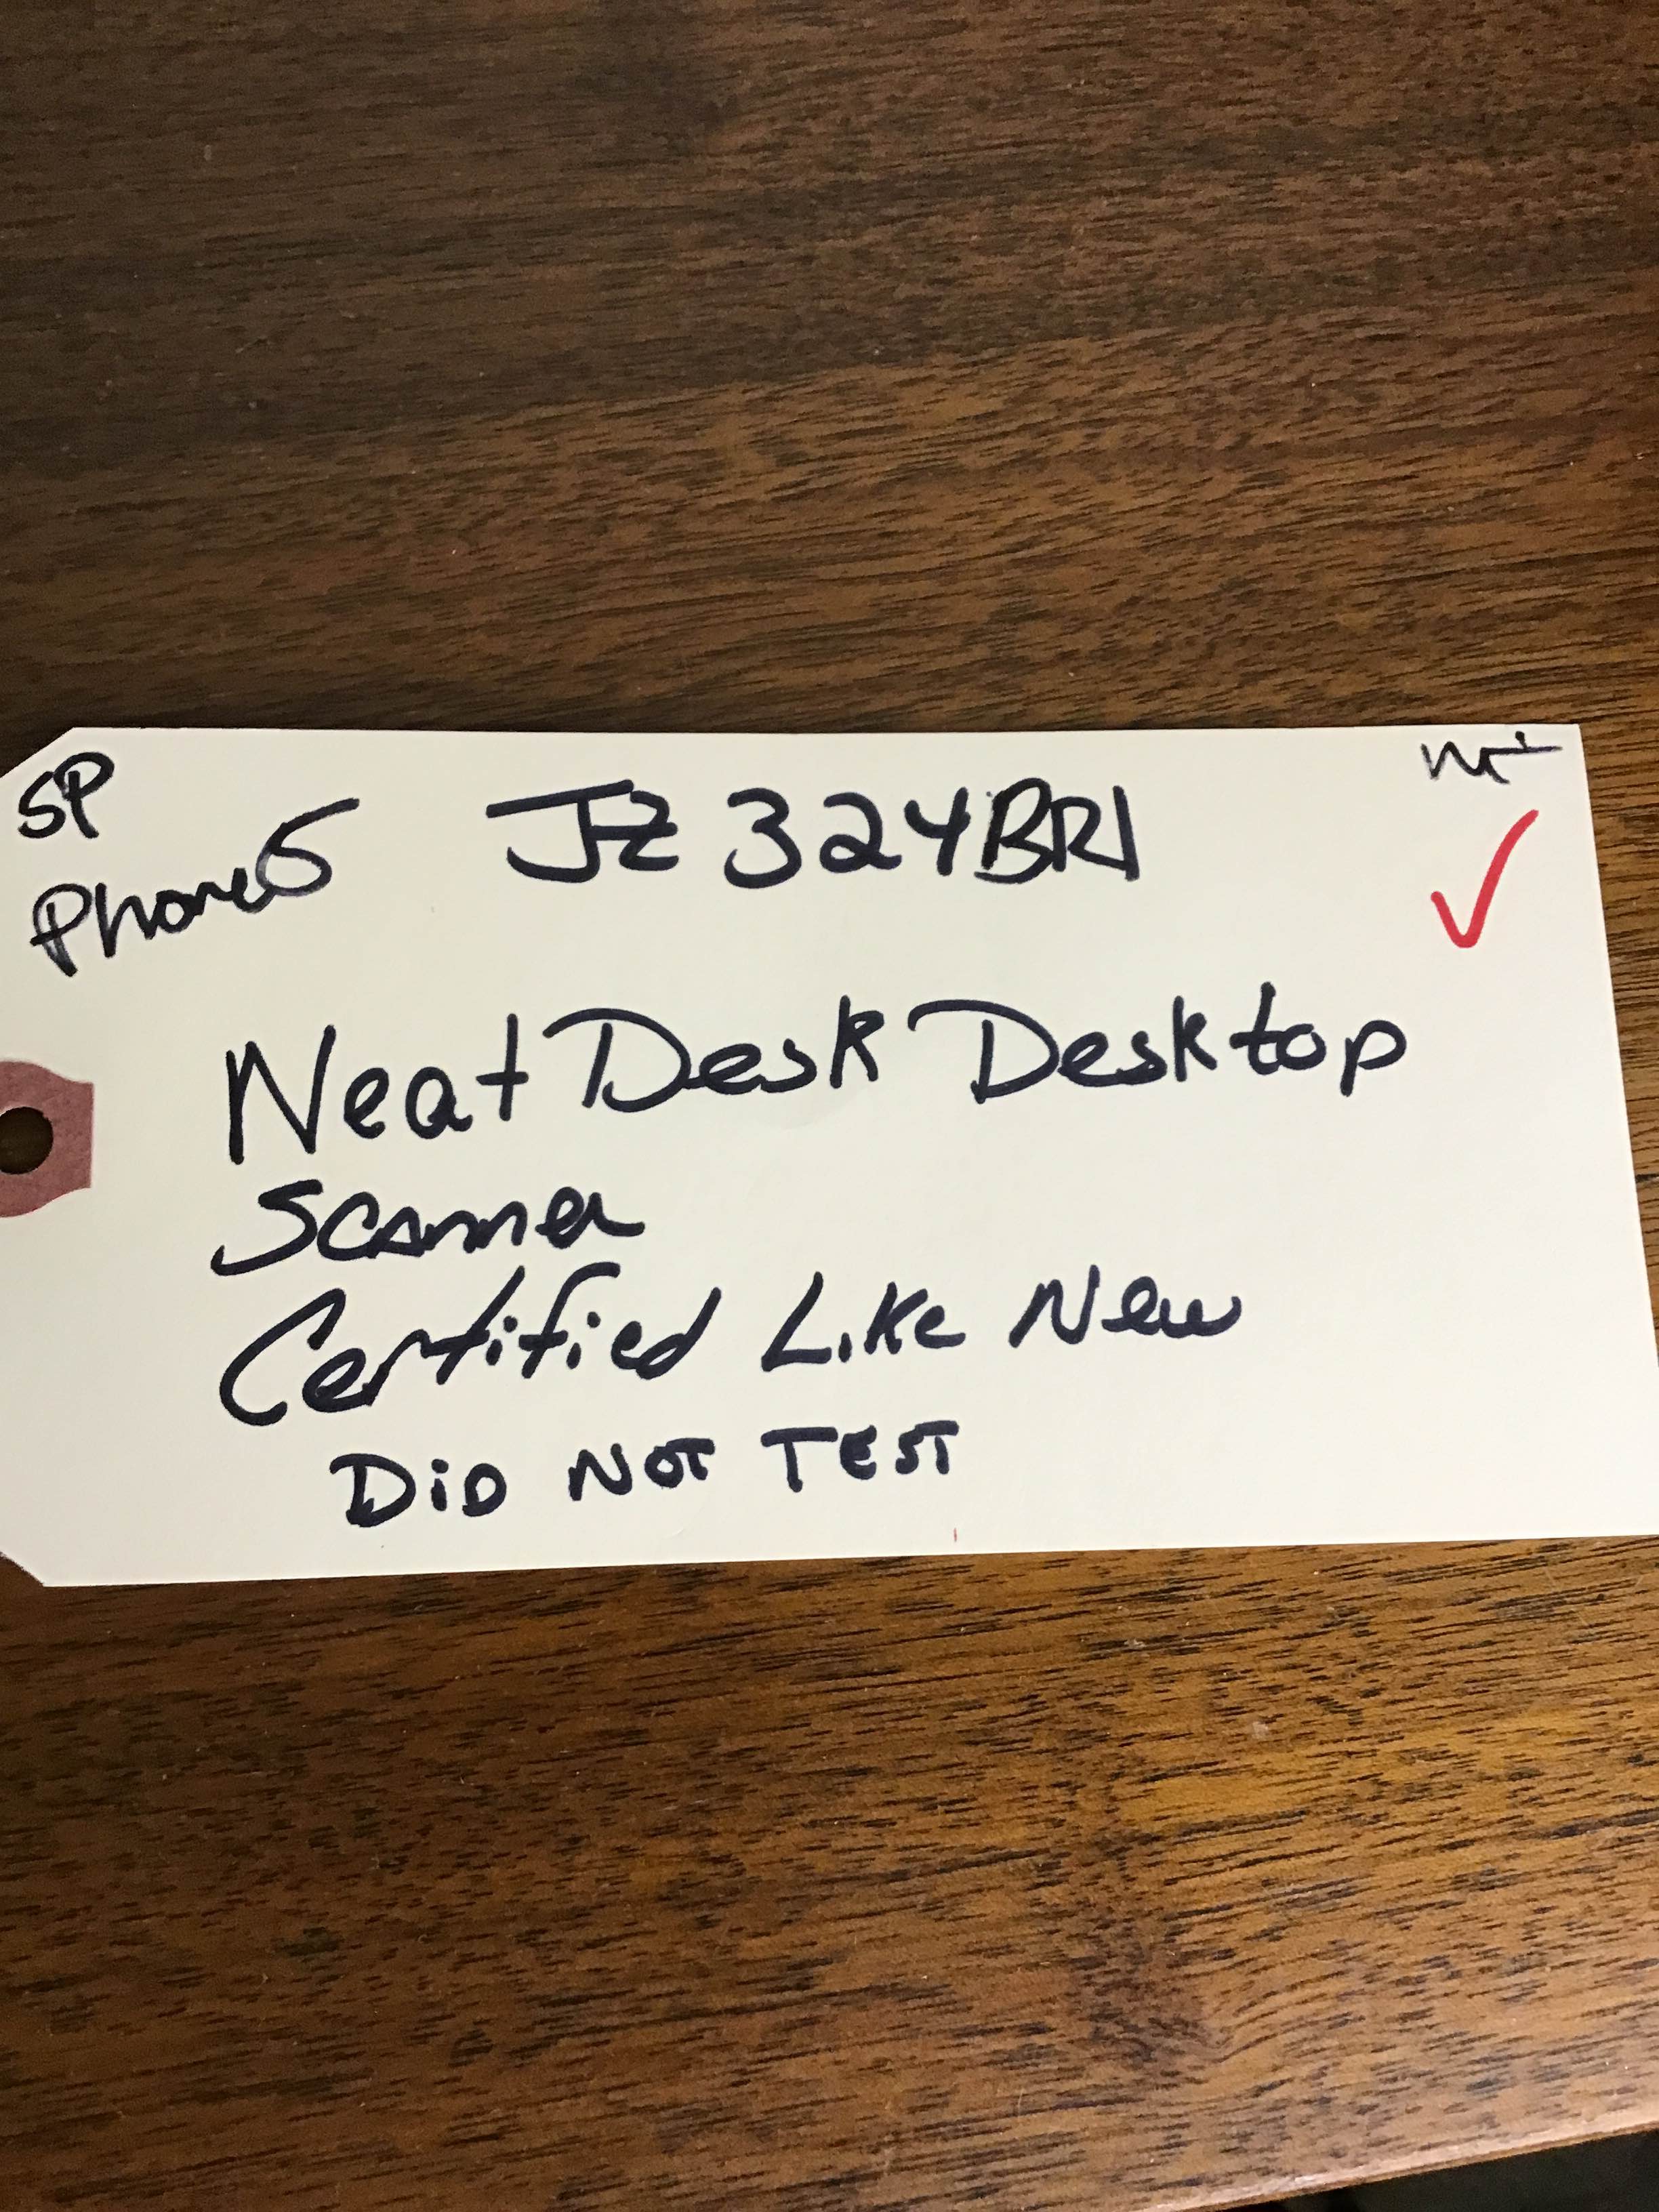 SP
Phone5 JZ324BR1
Neat Desk Desktop
Scanner
Certified Like New
DID NOT TEST